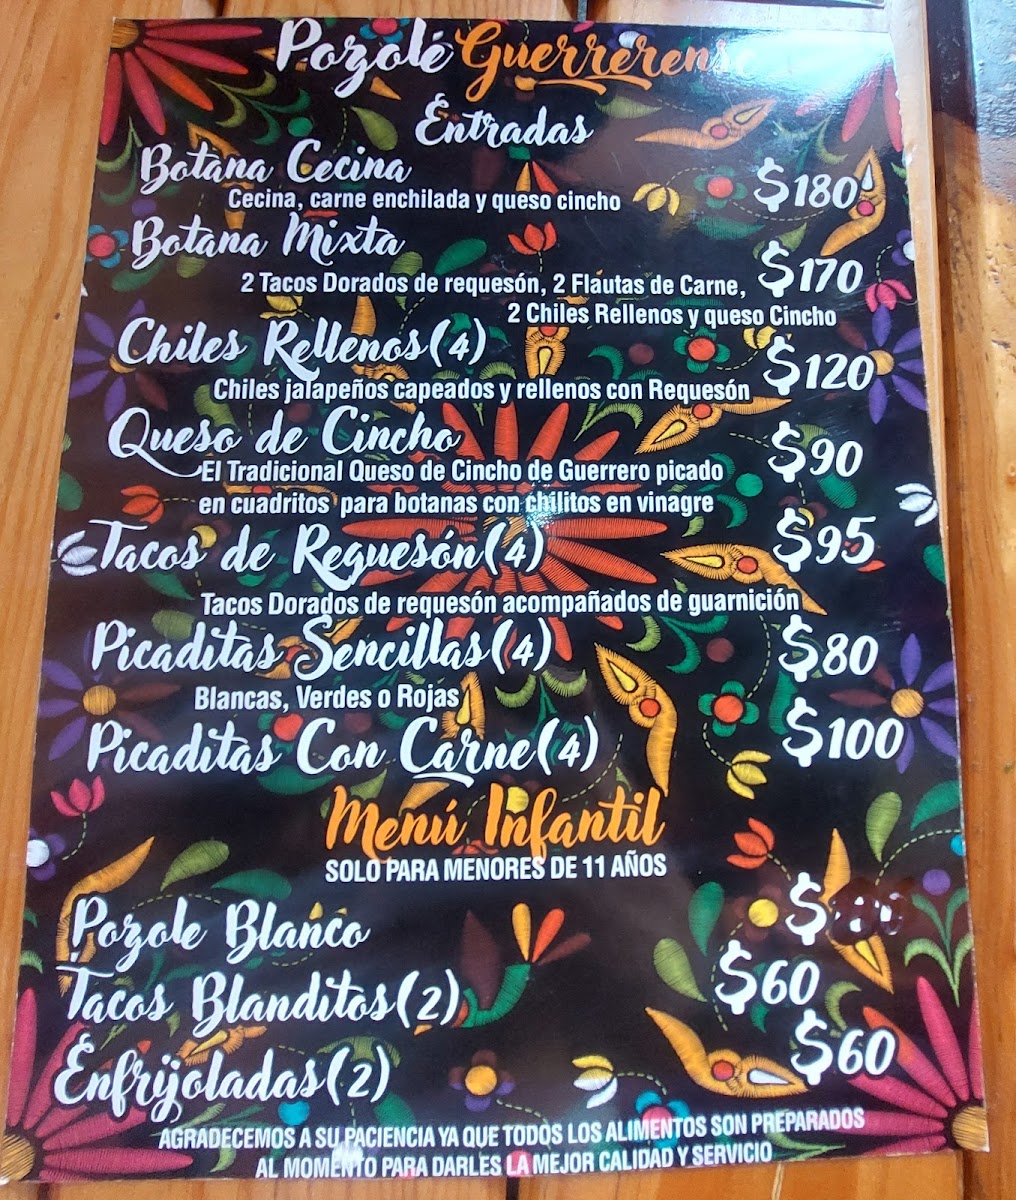 Pozole Guerrerens
Entradas
Botana Cecina $180
Cecina, carne enchilada y queso cincho
Botana Mixta $170
2 Tacos Dorados de requesón, 2 Flautas de Carne,
2 Chiles Rellenos y queso Cincho
Chiles Rellenos(4) $120
Chiles jalapeños capeados y rellenos con Requesón
Queso de Cincho $90
El Tradicional Queso de Cincho de Guerrero picado
en cuadritos para botanas con chilitos en vinagre
Tacos de Requesón(4) $95
Tacos Dorados de requesón acompañados de guarnición
Picaditas Sencillas(4) $80
Blancas, Verdes o Rojas
Picaditas Con Carne(4) $100
Menú Infantil
SOLO PARA MENORES DE 11 AÑOS
Pozole Blanco $
Tacos Blanditos(2) $60
Enfrijoladas(2) $60
AGRADECEMOS A SU PACIENCIA YA QUE TODOS LOS ALIMENTOS SON PREPARADOS
AL MOMENTO PARA DARLES LA MEJOR CALIDAD Y SERVICIO